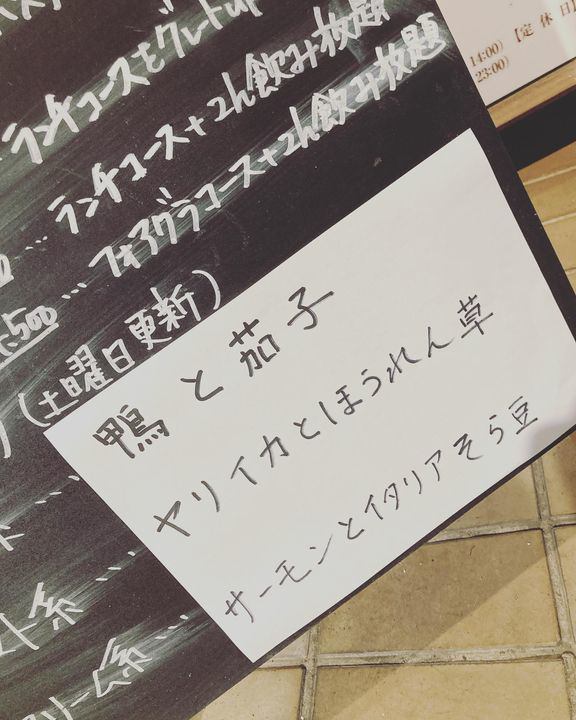 ランチコースをグレードup
… ランチコース＋2h飲み放題
500 … フォアグラコース＋2h飲み放題
(土曜日更新)
鴨と茄子
ヤリイカとほうれん草
サーモンとイタリアそら豆
ト系 …
リーム系 …
14:00)【定休日
23:00)